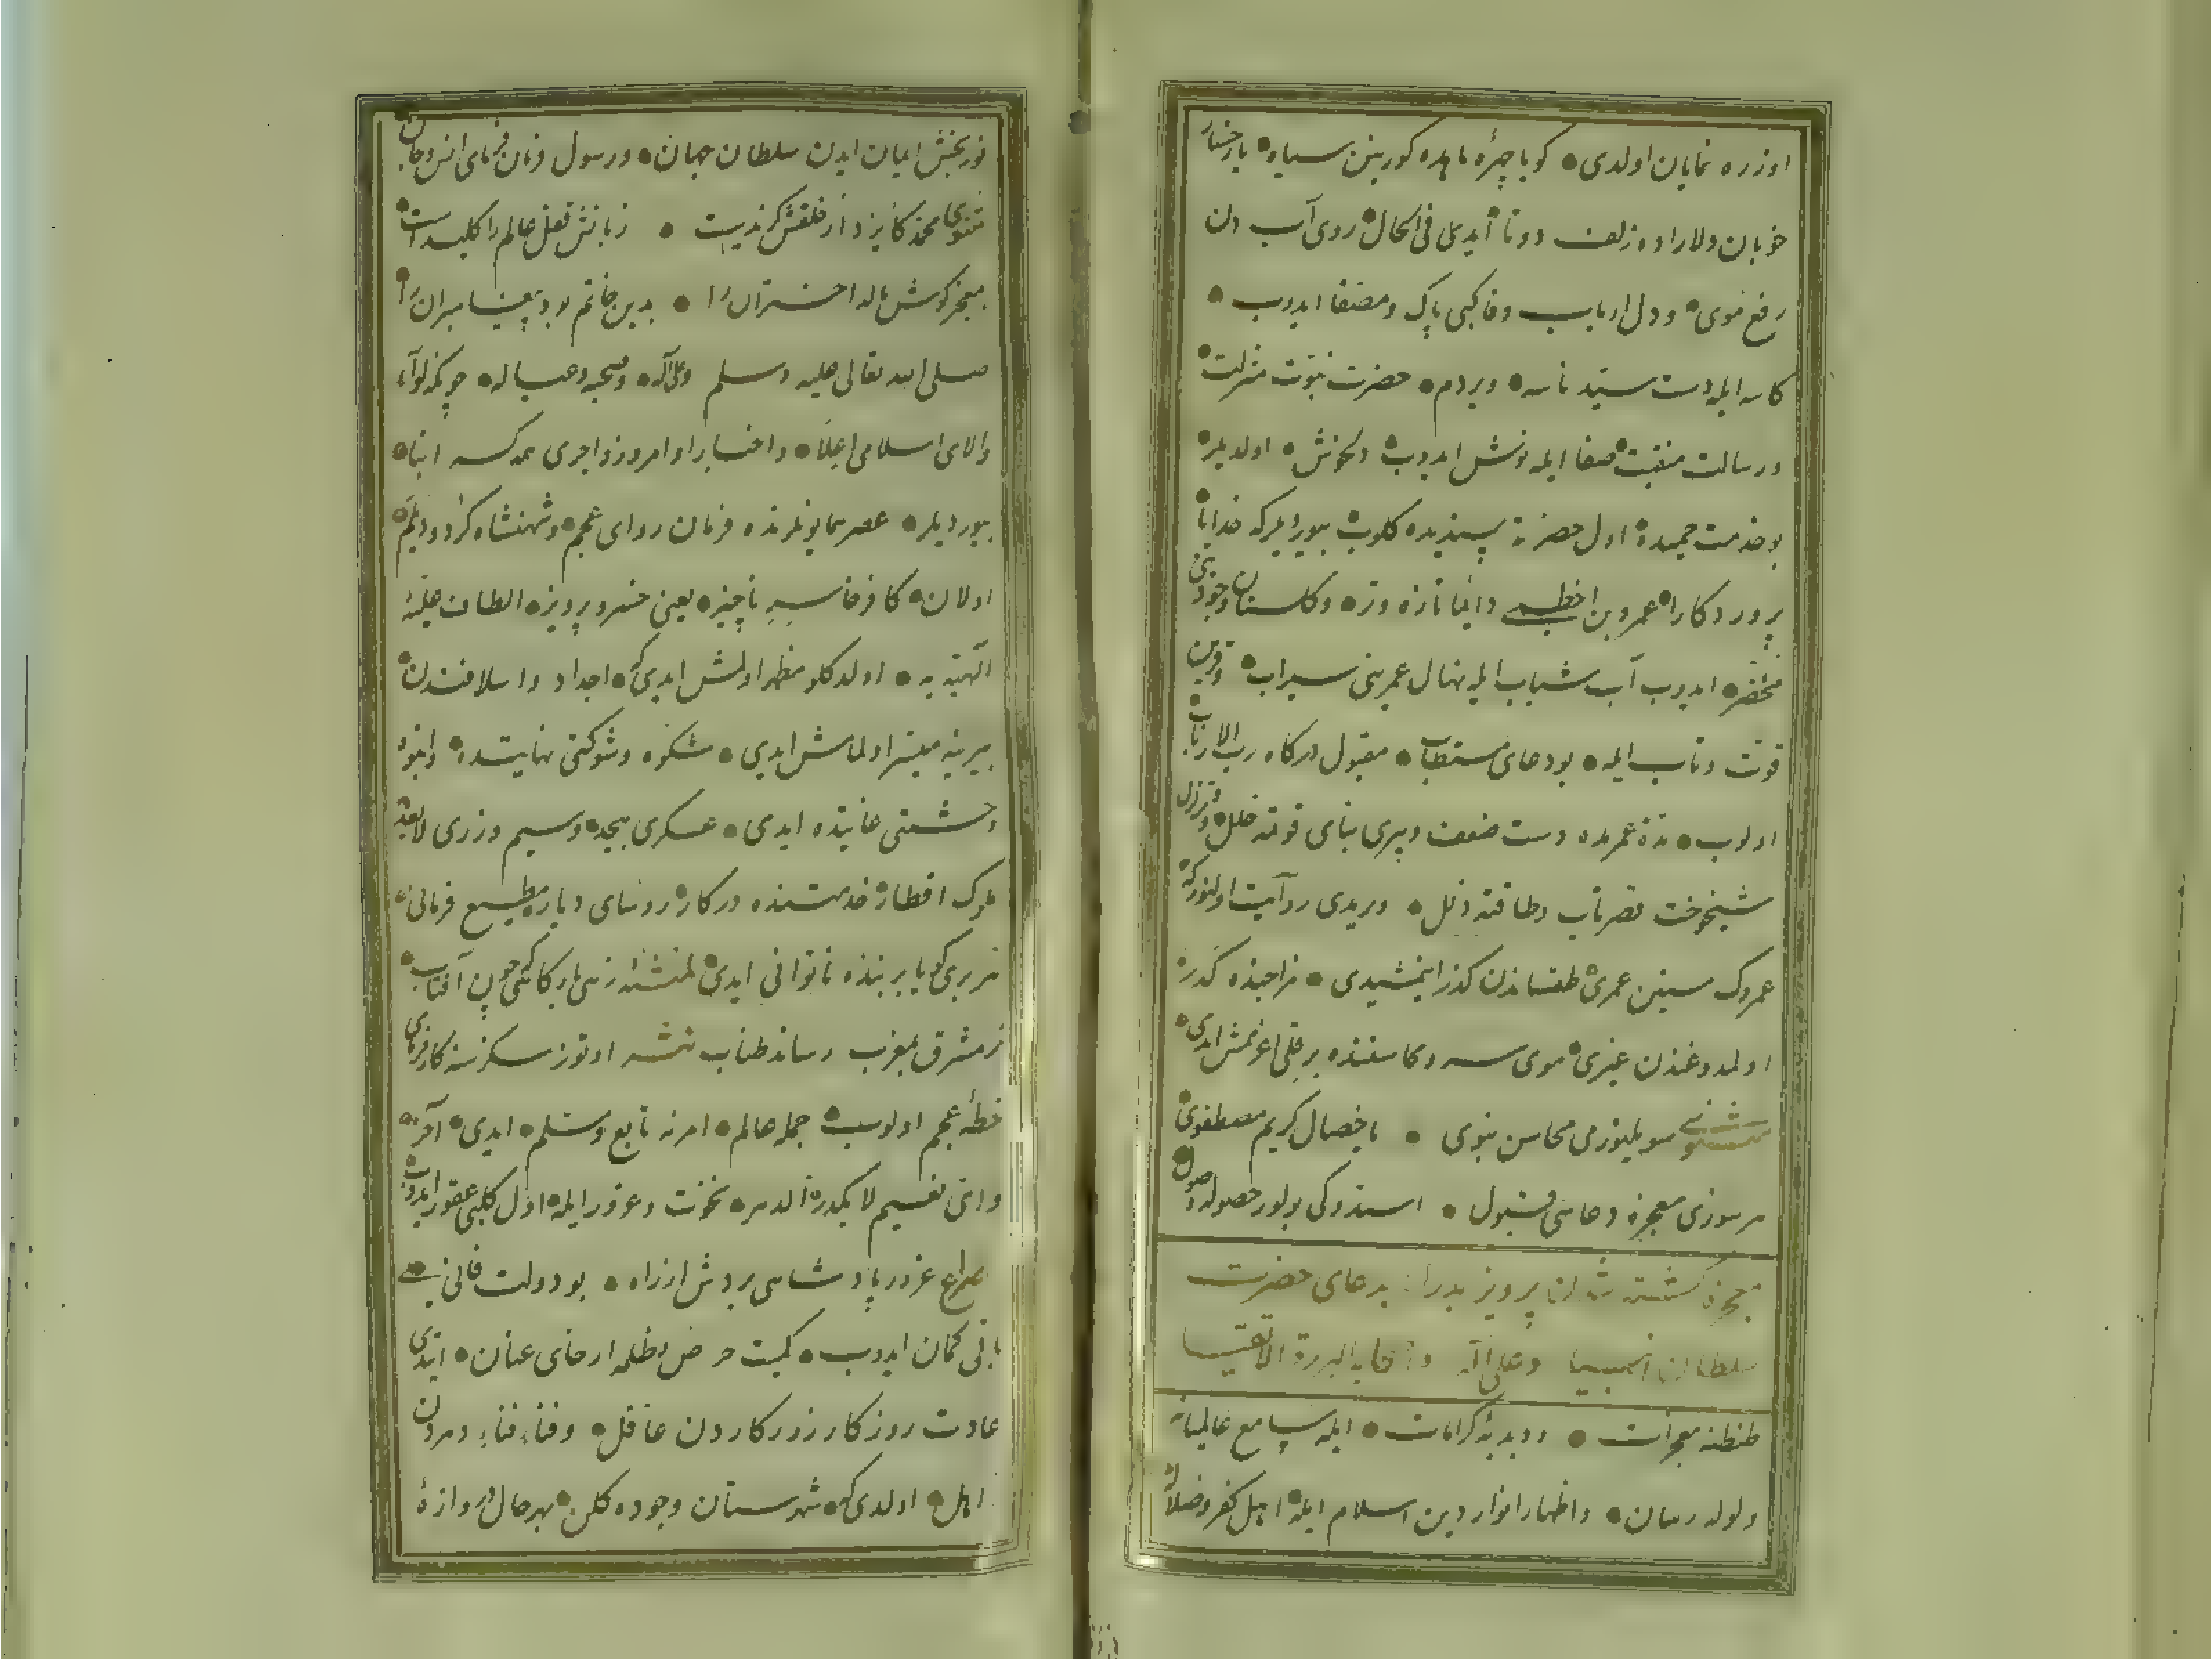 اوزره نمایان اولدی کویا چهرۀ ماهده کورینن سیاه یا رخسار
خوبان دلاراده زلف دوتا ایدی فی الحال روی آب دن
رفع موی و دل ارباب وفا کبی پاک و مصفا ایدوب
کاسه ایله دست سید ناسه ویردم حضرت نبوت منزلت
ورسالت منقبت صفا ایله نوش ایدوب دلخوش اولدیلر
بو خدمت حمیده اول حضرته پسندیده کلوب بیوردیلر که خدایا
پروردکارا عمرو بن اخطب دائما تازه وتر وکلستان وجودینی
مخضر ایدوب آب شباب ایله نهال عمرینی سیراب وقرین
قوت وتاب ایله بو دعای مستطاب مقبول درکاه رب الارباب
اولوب مدة عمرنده دست ضعف وپیری بنای قوتنه خلل وتزلزل
شیخوخت قصر تاب وطاقتنه ذلل ویرمدی روایت اولنور که
عمروک سنین عمری طقساندن کذر ایتمشیدی مزاجنده کدر
اولمدوغندن غیری موی سر ومحاسننده بر قلی اغرمش ایدی
مثنوی سویلینور می محاسن نبوی با خصال کریم مصطفوی
هر سوزی معجزه دعاسی قبول استدوکی بولور حصوله وصول
معجزۀ کشته شدن پرویز بدرا بدعای حضرت
سلطان انبیا وعلی آله واصحابه البررة الاتقیا
طنطنه معجزات ودبدبۀ کرامات ایله مسامع عالمیانه
ولوله رسان واظهار انوار دین اسلام ایله اهل کفر وضلاله
نور بخش ایمان ایدن سلطان جهان ورسول فرمان فرمای انس وجان
مثنوی محمد کافرید از خلقش کزیدست زبانش قفل عالم را کلیدست
بمعجز کوش مالد اختران را بدین خاتم بود پیغامبران را
صلی الله تعالی علیه وسلم وعلی آله وصحبه وعیاله چونکه لوآء
والای اسلامی اعلا واخبار اوامر وزواجری عمد کسه انبا
بیوردیلر عصر همایونلرنده فرمان روای عجم وشهنشاه کرد ودیلم
اولان کافر خاسر ناچیز یعنی خسرو پرویز الطاف علیۀ
الهیه یه اولدکلو مظهر اولمش ایدی که اجداد واسلافندن
بیرینه میسر اولمامش ایدی شکوه وشوکتی نهایتده وابهت
وحشمتی غایتده ایدی عسکری بیحد وسیم وزری لا یعد
ملوک اقطار خدمتنده درکار رؤسای دیار مطیع فرمانی
هر بری کویا بر بنده ناتوانی ایدی زهی بارکاهی که چون آفتاب
ز مشرق بمغرب رساند طناب اوتوز سکز سنه کارفرمای
خطۀ عجم اولوب جمله عالم امرینه تابع ومسلم ایدی آخر
نخوت وغرور ایله اول کلب عقور ایدوب
مصراع غرور پادشاهی بردش از راه بو دولت فانی یی
باقی کمان ایدوب کمیت حرص وظلمه ارخای عنان ایتدی
عادت روزکار زورکاردن غافل وفناء فناء دهردن
اهل اولدی که شهرستان وجوده کلن بهر حال دروازۀ